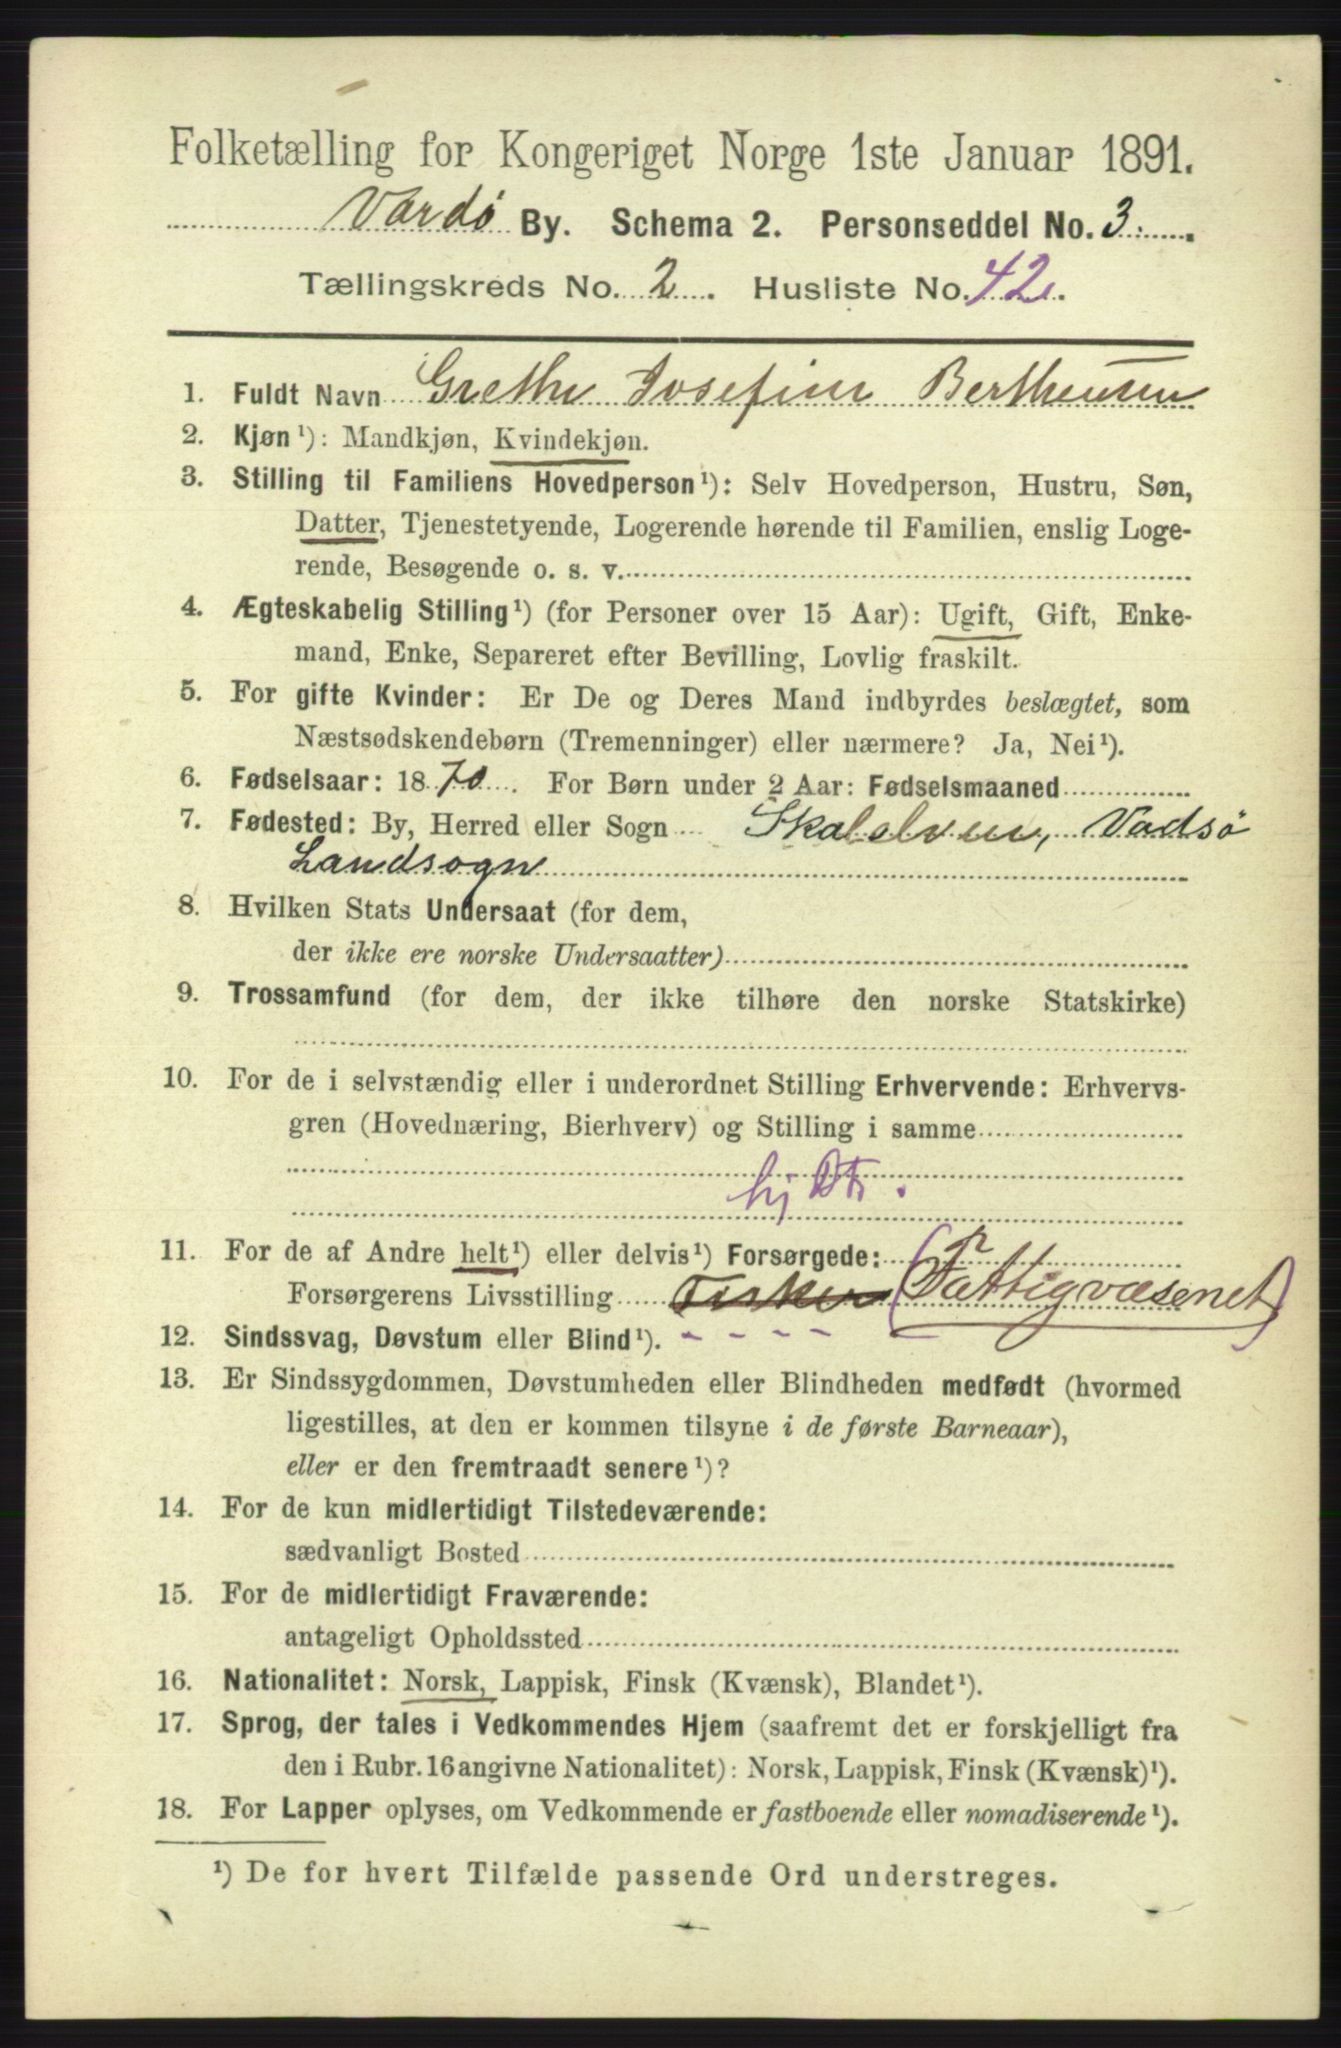 Folketælling for Kongeriget Norge 1ste Januar 1891.
Vardö By. Schema 2. Personseddel No. 3.
Tællingskreds No. 2. Husliste No. 42.
1. Fuldt Navn Grethe Josefine Berthensen
2. Kjøn¹): Mandkjøn, Kvindekjøn.
3. Stilling til Familiens Hovedperson¹): Selv Hovedperson, Hustru, Søn,
Datter, Tjenestetyende, Logerende hørende til Familien, enslig Loge-
rende, Besøgende o. s. v.
4. Ægteskabelig Stilling¹) (for Personer over 15 Aar): Ugift, Gift, Enke-
mand, Enke, Separeret efter Bevilling, Lovlig fraskilt.
5. For gifte Kvinder: Er De og Deres Mand indbyrdes beslægtet, som
Næstsødskendebørn (Tremenninger) eller nærmere? Ja, Nei¹).
6. Fødselsaar: 1870. For Børn under 2 Aar: Fødselsmaaned
7. Fødested: By, Herred eller Sogn Skalelven, Vadsö
Landsogn
8. Hvilken Stats Undersaat (for dem,
der ikke ere norske Undersaatter)
9. Trossamfund (for dem, der ikke tilhøre den norske Statskirke)
10. For de i selvstændig eller i underordnet Stilling Erhvervende: Erhvervs-
gren (Hovednæring, Bierhverv) og Stilling i samme
hj Dtr.
11. For de af Andre helt¹) eller delvis¹) Forsørgede:
Forsørgerens Livsstilling Fisker (Fattigvæsenet)
12. Sindssvag, Døvstum eller Blind¹).
13. Er Sindssygdommen, Døvstumheden eller Blindheden medfødt (hvormed
ligestilles, at den er kommen tilsyne i de første Barneaar),
eller er den fremtraadt senere¹)?
14. For de kun midlertidigt Tilstedeværende:
sædvanligt Bosted
15. For de midlertidigt Fraværende:
antageligt Opholdssted
16. Nationalitet: Norsk, Lappisk, Finsk (Kvænsk), Blandet¹).
17. Sprog, der tales i Vedkommendes Hjem (saafremt det er forskjelligt fra
den i Rubr. 16 angivne Nationalitet): Norsk, Lappisk, Finsk (Kvænsk)¹).
18. For Lapper oplyses, om Vedkommende er fastboende eller nomadiserende¹).
¹) De for hvert Tilfælde passende Ord understreges.